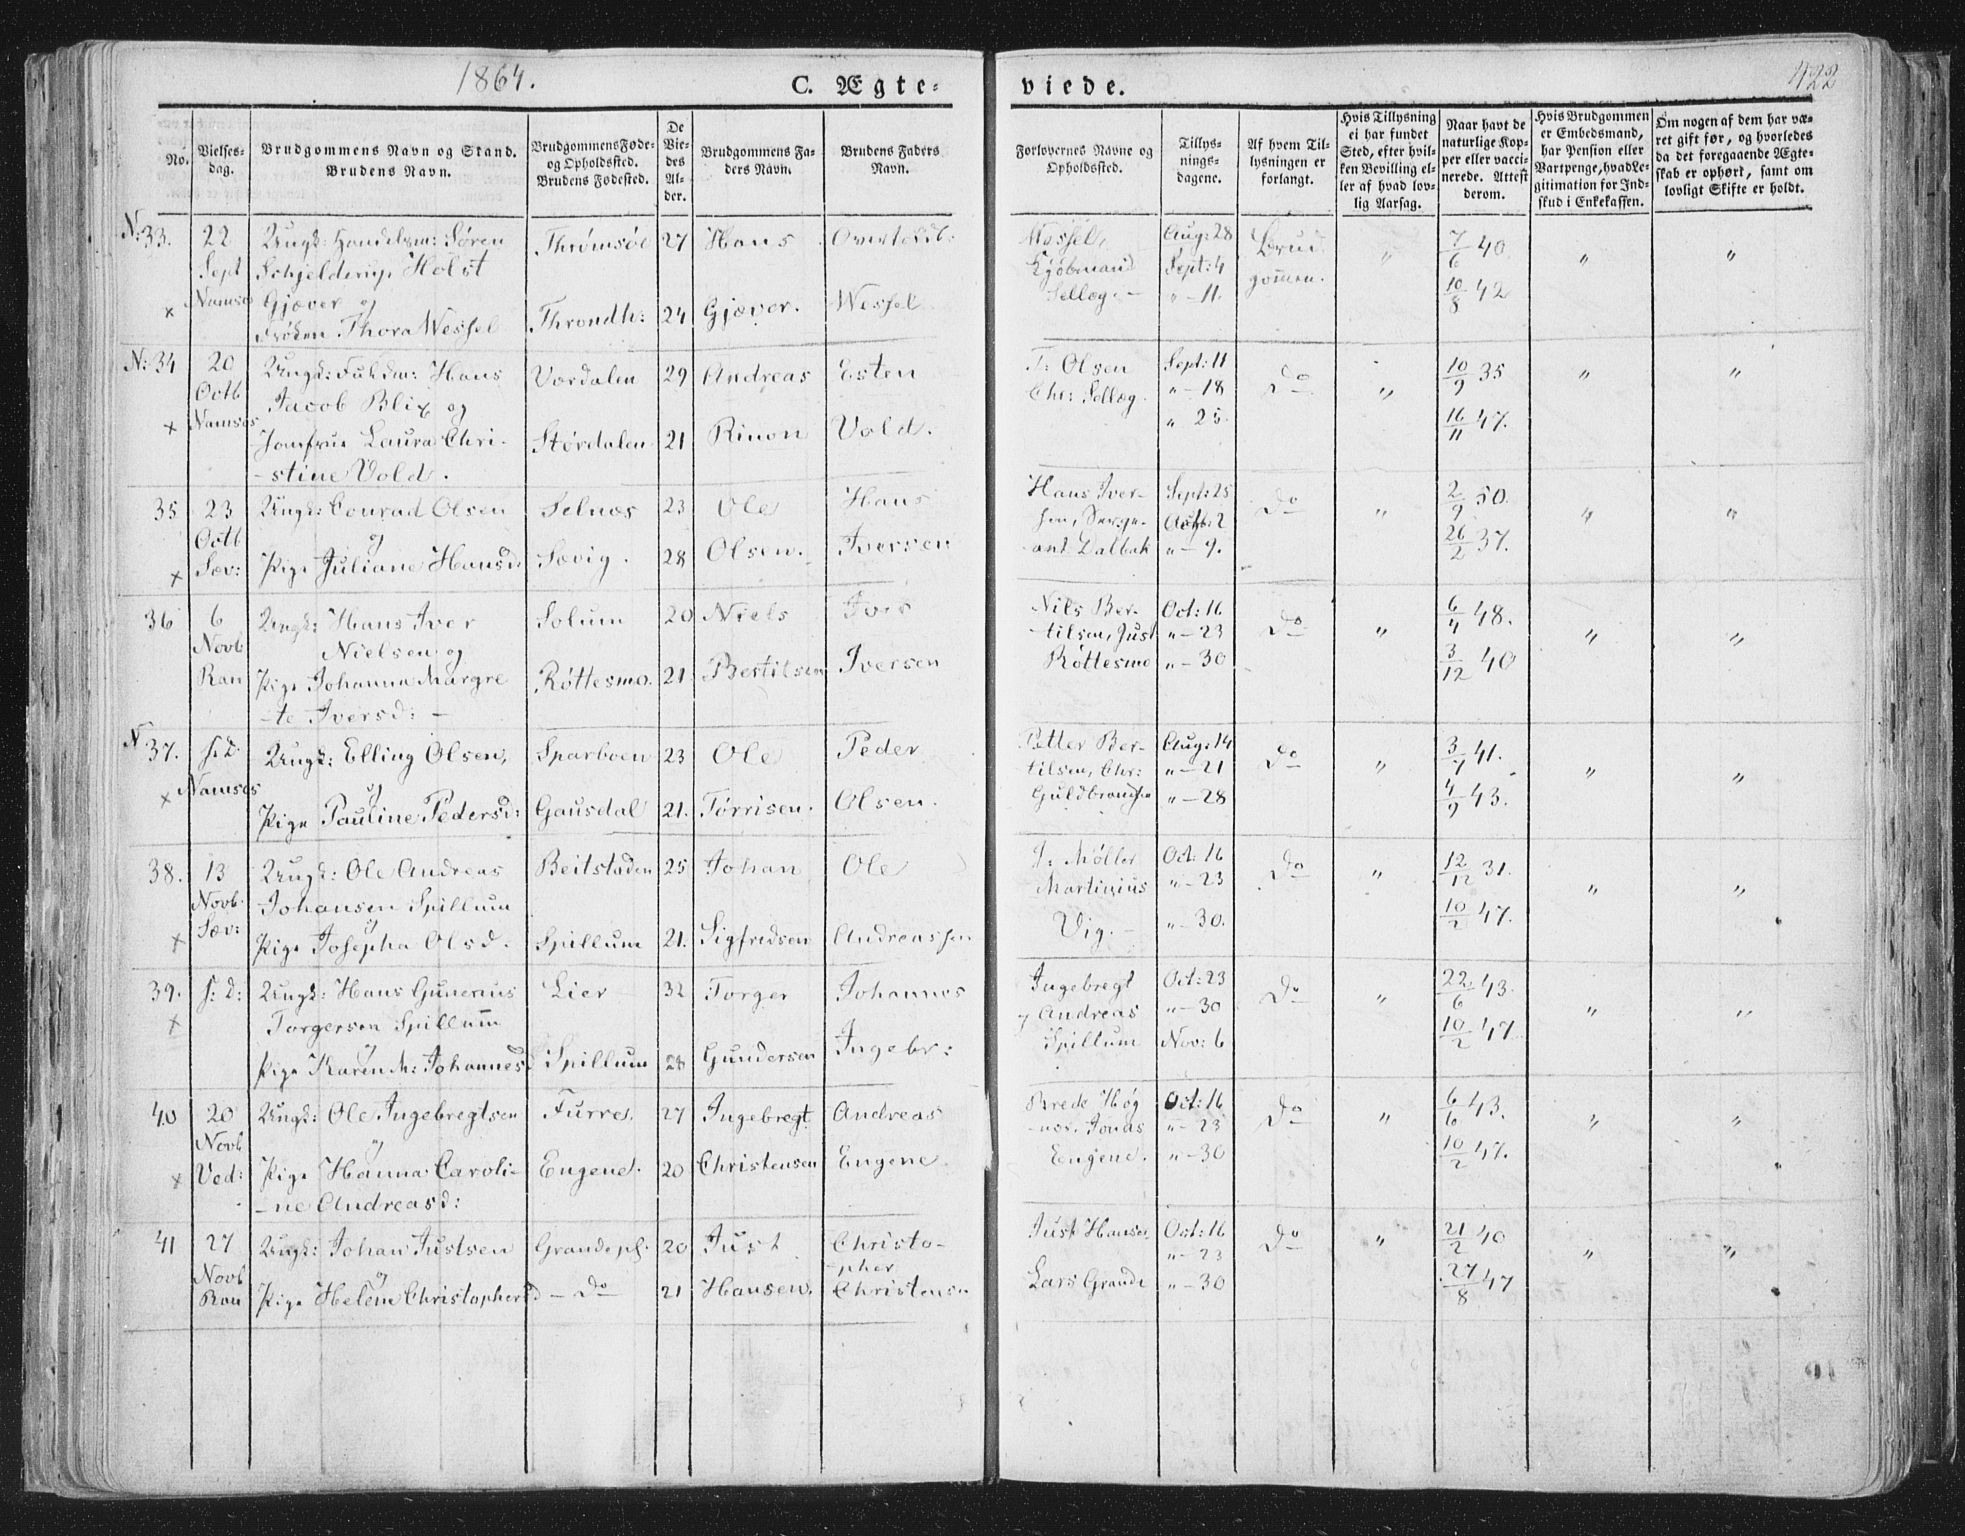 1864.
C. Ægte-
viede.
422
No.
Vielses-
dag.
Brudgommens Navn og Stand.
Brudens Navn.
Brudgommens Føde-
og Opholdssted.
Brudens Fødested.
De
Vie-
des
Al-
der.
Brudgommens Fa-
ders Navn.
Brudens Faders
Navn.
Forlovernes Navne og
Opholdssted.
Tillys-
nings-
dagene.
Af hvem Til-
lysningen er
forlangt.
Hvis Tillysning
ei har fundet
Sted, efter hvil-
ken Bevilling el-
ler af hvad lov-
lig Aarsag.
Naar havt de
naturlige Kop-
per eller vacci-
nerede. Attest
derom.
Hvis Brudgommen
er Embedsmand,
har Pension eller
Vartpenge, hvad Le-
gitimation for Ind-
skud i Enkekassen.
Om nogen af dem har væ-
ret gift før, og hvorledes
da det foregaaende Ægte-
skab er ophørt, samt om
lovligt Skifte er holdt.
N: 33. 22 Ungk: Handelsm: Søren Thromsøe 27 Hans Overtoldb: Wessel, Aug: 28 Brud 7/6 40 " "
Sept Schjelderup Holst Kjøbmand Sept: 4 gommen. "
x Namsos Gjæver og Throndh: 24 Gjæver. Wessel Sellæg. " - 11. 10/8 42
Frøken Thora Wessel
N: 34 20 Ungk: Hans Værdalen 29 Andreas Esten T: Olsen Sept: 11 Do " 10/9 35 " "
Octb Jacob Blix og Chr: Sellæg. " - 18
x Namsos Jomfrue Laura Chri- Størdalen 21 Rinon Vold. " 25. 16/11 47.
-stine Vold.
35 23 Ungk: Conrad Olsen Selnæs 23 Ole Hans Hans Iver- Sept: 25 Do " 2/9 50. " "
Octb og sen, Serge- Octb: 2
x Sæv: Pige Juliane Hansd: Sævig. 28 Olsen. Iversen ant Dalbak " - 9. 26/2 37.
36 6 Ungk: Hans Iver Solum 20 Niels Iver Nils Ber- Oct: 16 Do " 6/4 48. " "
Novb Nielsen og tilsen, Just " - 23
Ran Pige Johanna Margre Røttesmo. 21. Bertilsen Iversen Røttesmo " - 30 3/12 40
-te Iversd: -
N 37. s. D. Ungk: Elling Olsen, Sparboen 23 Ole Peder Petter Ber- Aug: 14 Do " 3/7 41. " "
x Namsos og tilsen, Chr: " - 21
Pige Pauline Pedersd: Gausdal 21. Tørrisen. Olsen. Guldbrandsen " - 28 4/9 43.
38. 13 Ungk: Ole Andreas Beitstaden 25 Johan Ole J: Møller Oct: 16 Do " 12/12 31. " "
Novb. Johansen Spillum Martinius " - 23
x Sæv: og Vig. - " - 30. 10/2 47.
Pige Josepha Olsd. Spillum 21. Sigfredsen Andreassen
39. s: d: Ungk: Hans Gunerius Lier 32 Torger Johannes Ingebregt Oct: 23 Do " 22/6 43. " "
x Torgersen Spillum Andreas " - 30
og Spillum Nov: 6 10/2 47
Pige Karen M: Johannesd Spillum 28 Gundersen Ingebr:
40 20 Ungk: Ole Ingebregtsen Furre, 27 Ingebregt Andreas Brede Høg Oct: 16 Do " 6/6 43. " "
Novb og næs. Jonas " - 23
x Ved: Pige Hanna Caroli- Engene. 20 Christensen Engene. Engene. " - 30 10/2 47.
-ne Andreasd:
41 27 Ungk: Johan Justsen Grandepl. 20 Just Christo- Just Hansen, Oct: 16 Do " 21/2 40 " "
Novb og -pher " - 23
Ran Pige Helene Christophersd - Do 21 Hansen. Christensen Lars Grande " - 30 27/8 47